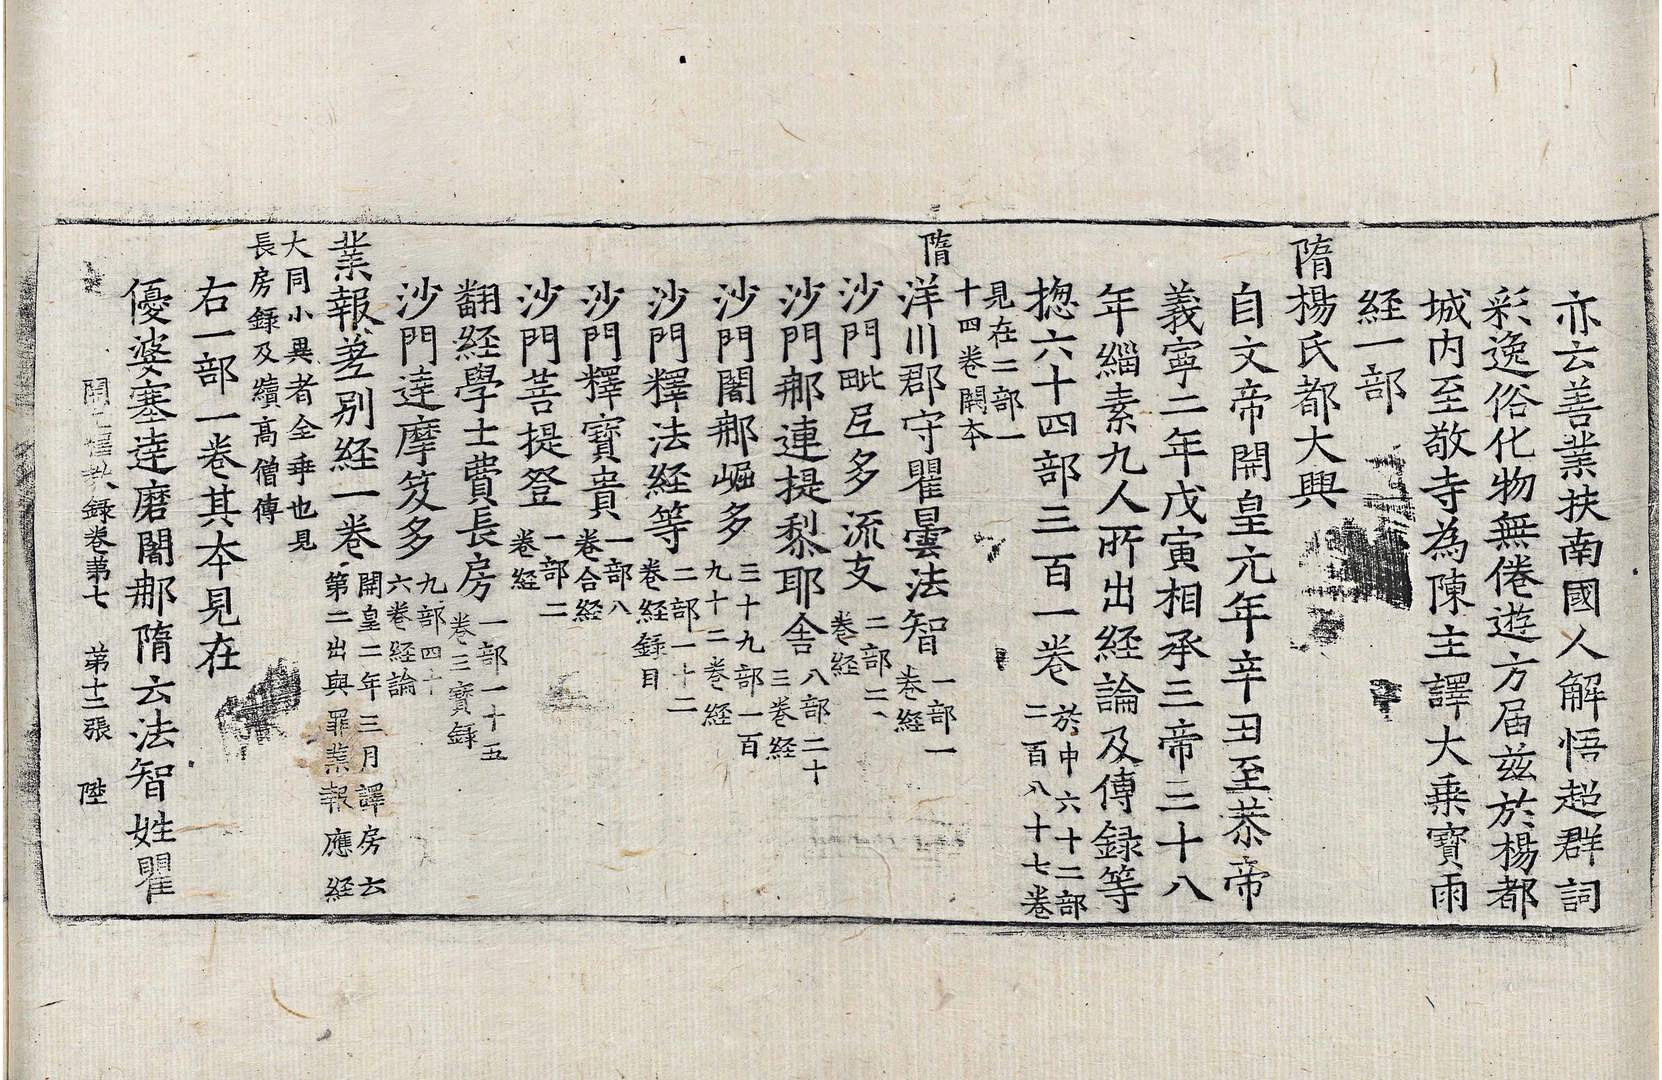 亦云善業扶南國人解悟超群詞
彩逸俗化物無倦遊方届兹於楊都
城内至敬寺為陳主譯大乗寳雨
経一部
隋楊氏都大興
自文帝開皇元年辛丑至恭帝
義寧二年戊寅相承三帝三十八
年緇素九人所出経論及傳録等
揔六十四部三百一卷
於中六十二部
二百八十七卷
見在二部一
十四卷闕本
隋洋川郡守瞿曇法智
一部一
卷経
沙門毗尼多流支
二部二
卷経
沙門那連提黎耶舍
八部二十
三卷経
沙門闍那崛多
三十九部一百
九十二卷経
沙門釋法経等
二部一十二
卷経錄目
沙門釋寳貴
一部八
卷合経
沙門菩提登
一部二
卷経
翻経學士費長房
一部一十五
卷三寳錄
沙門達摩笈多
九部四十
六卷経論
業報差別経一卷
開皇二年三月譯房云
第二出與罪業報應経
大同小異者全乖也見
長房録及續高僧傳
右一部一卷其本見在
優婆塞達磨闍那隋云法智姓瞿
開元釋教録卷第七 第十二張 陛